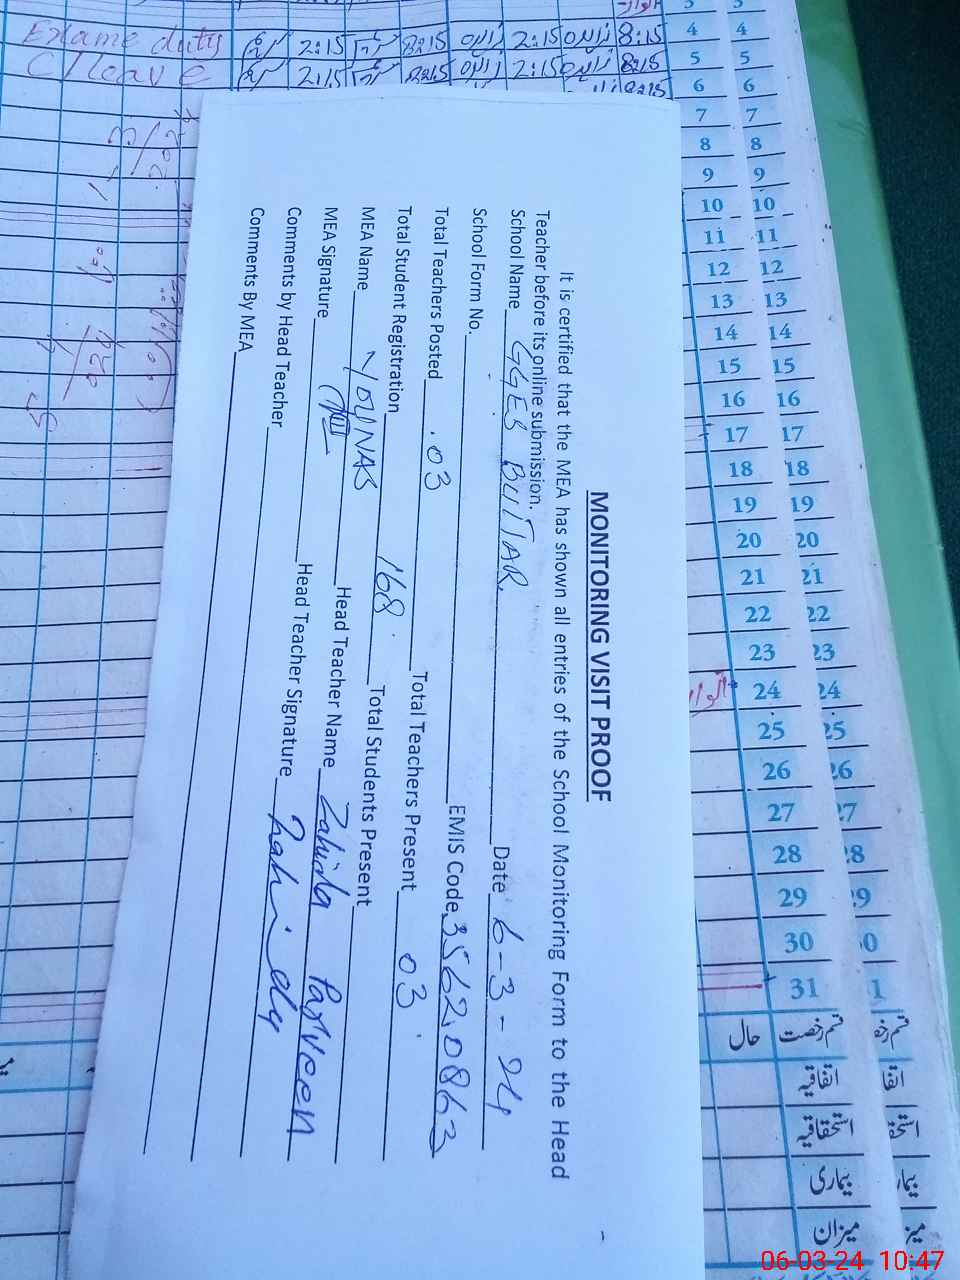 MONITORING VISIT PROOF
It is certified that the MEA has shown all entries of the School Monitoring Form to the Head
Teacher before its online submission.
School Name GGES BUTTAR Date 6-3-24
School Form No. EMIS Code 35620863
Total Teachers Posted .03 Total Teachers Present 03
Total Student Registration 168 Total Students Present
MEA Name YOUNAS Head Teacher Name Zahida Parveen
MEA Signature Head Teacher Signature
Comments by Head Teacher
Comments By MEA
Exame duty 2:15 8:15 2:15 8:15
C/leave 2:15 8:15 2:15 8:15
8:15
3 3
4 4
5 5
6 6
7 7
8 8
9 9
10 10
11 11
12 12
13 13
14 14
15 15
16 16
17 17
18 18
19 19
20 20
21 21
22 22
23 23
اتوار 24 24
25 25
26 26
27 27
28 28
29 29
30 0
31 1
حال قسم رخصت
اتفاقیہ
استحقاقیہ
بیماری
میزان
06-03-24 10:47